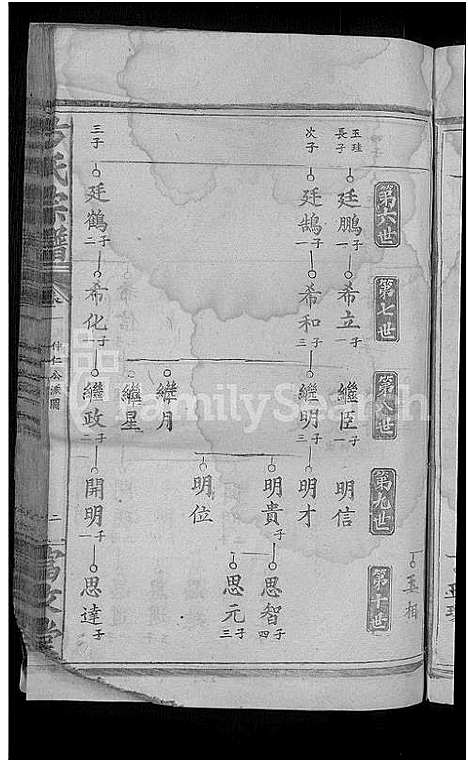 玉相
第六世
第七世
第八世
第九世
第十世
玉珪
長子
廷鵬
一子
希立
一子
繼臣
一子
明信
次子
廷鵠
一子
希和
三子
繼明
三子
明才
明貴
子
思智
四子
思元
三子
明位
繼月
繼星
三子
廷鶴
二子
希化
子
繼政
二子
開明
一子
思達
子
氏宗譜
仲仁公派圖
二
FamilySearch